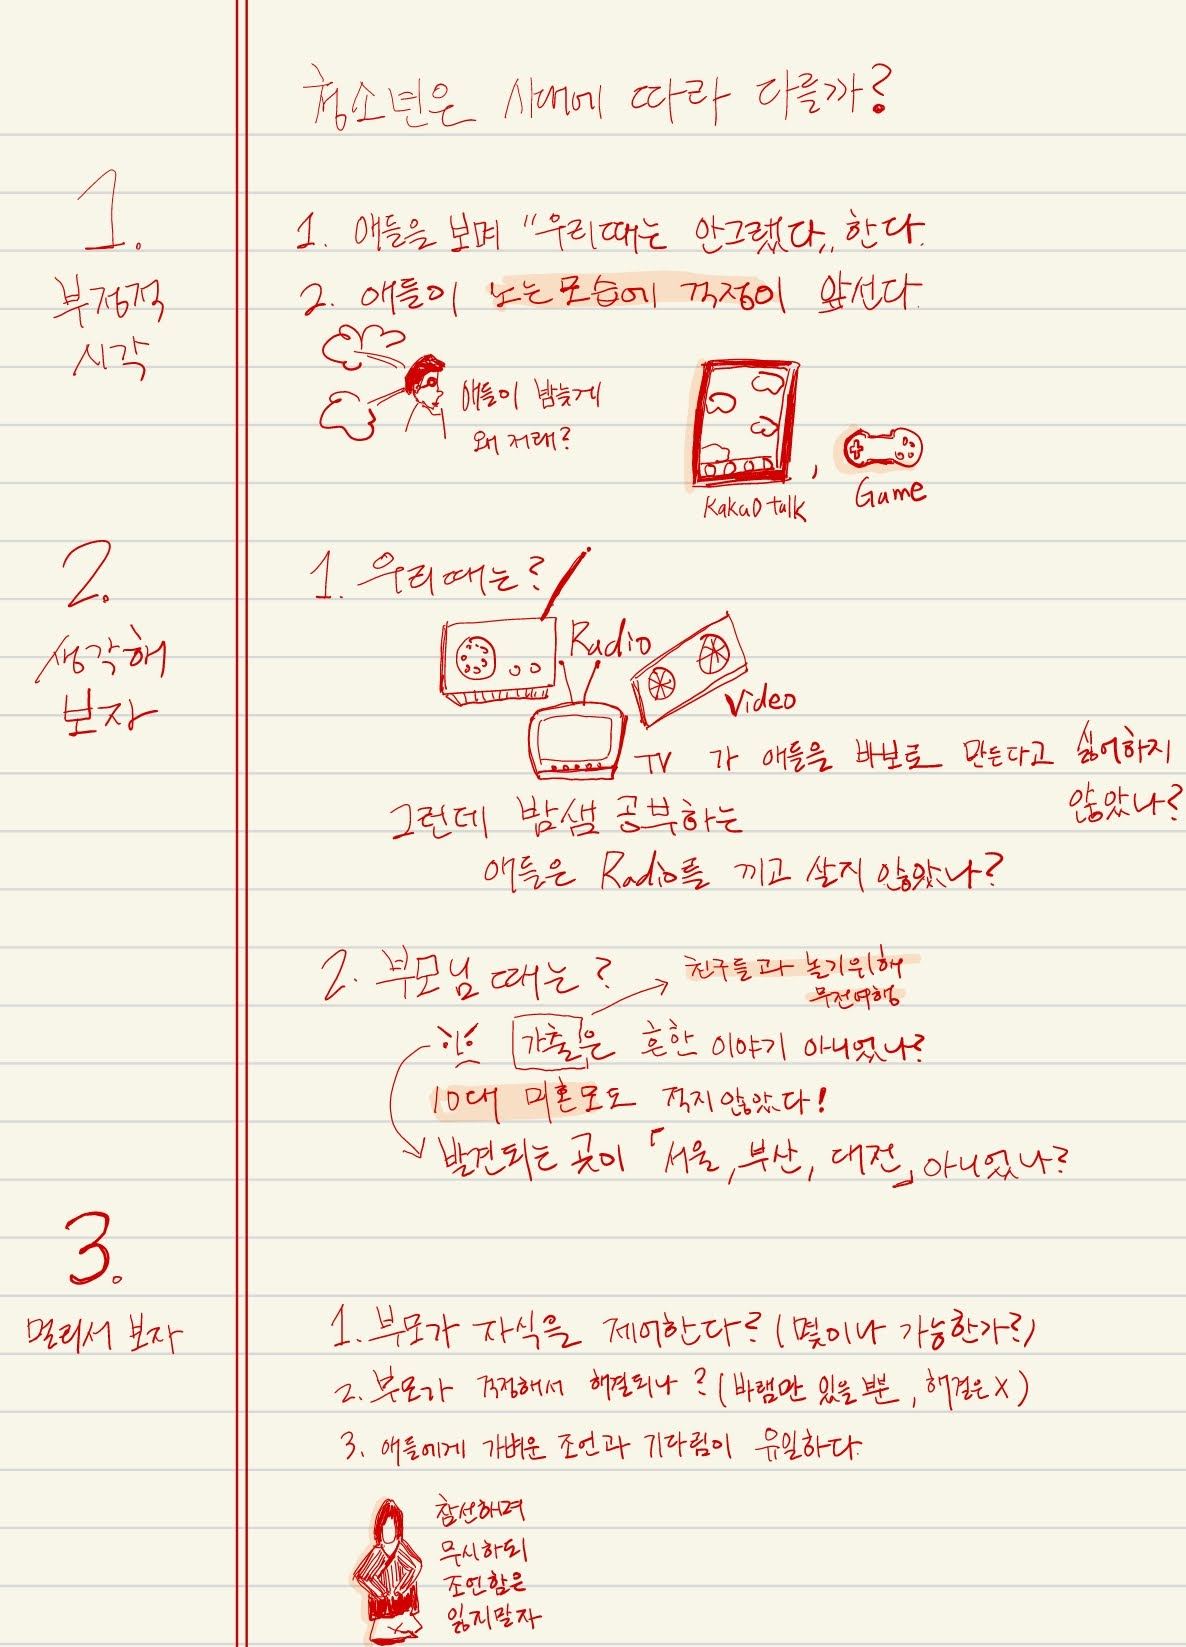 청소년은 시대에 따라 다를까?
1.
부정적
시각
1. 애들을 보며 "우리때는 안그랬다,, 한다.
2. 애들이 노는모습에 걱정이 앞선다.
애들이 밤늦게
왜 저래?
KakaO talk
,
Game
2.
생각해
보자
1. 우리때는?
Radio
Video
TV 가 애들을 바보로 만든다고 싫어하지
않았나?
그런데 밤샘 공부하는
애들은 Radio를 끼고 살지 않았나?
2. 부모님 때는?
친구들과 놀기위해
무전여행
가출은 흔한 이야기 아니었나?
10대 미혼모도 적지않았다!
발견되는 곳이 「서울, 부산, 대전」 아니었나?
3.
멀리서 보자
1. 부모가 자식을 제어한다? (몇이나 가능한가?)
2. 부모가 걱정해서 해결되나? (바램만 있을 부분, 해결은 X)
3. 애들에게 가벼운 조언과 기다림이 유일하다.
참선하며
무시하되
조언함은
잃지말자